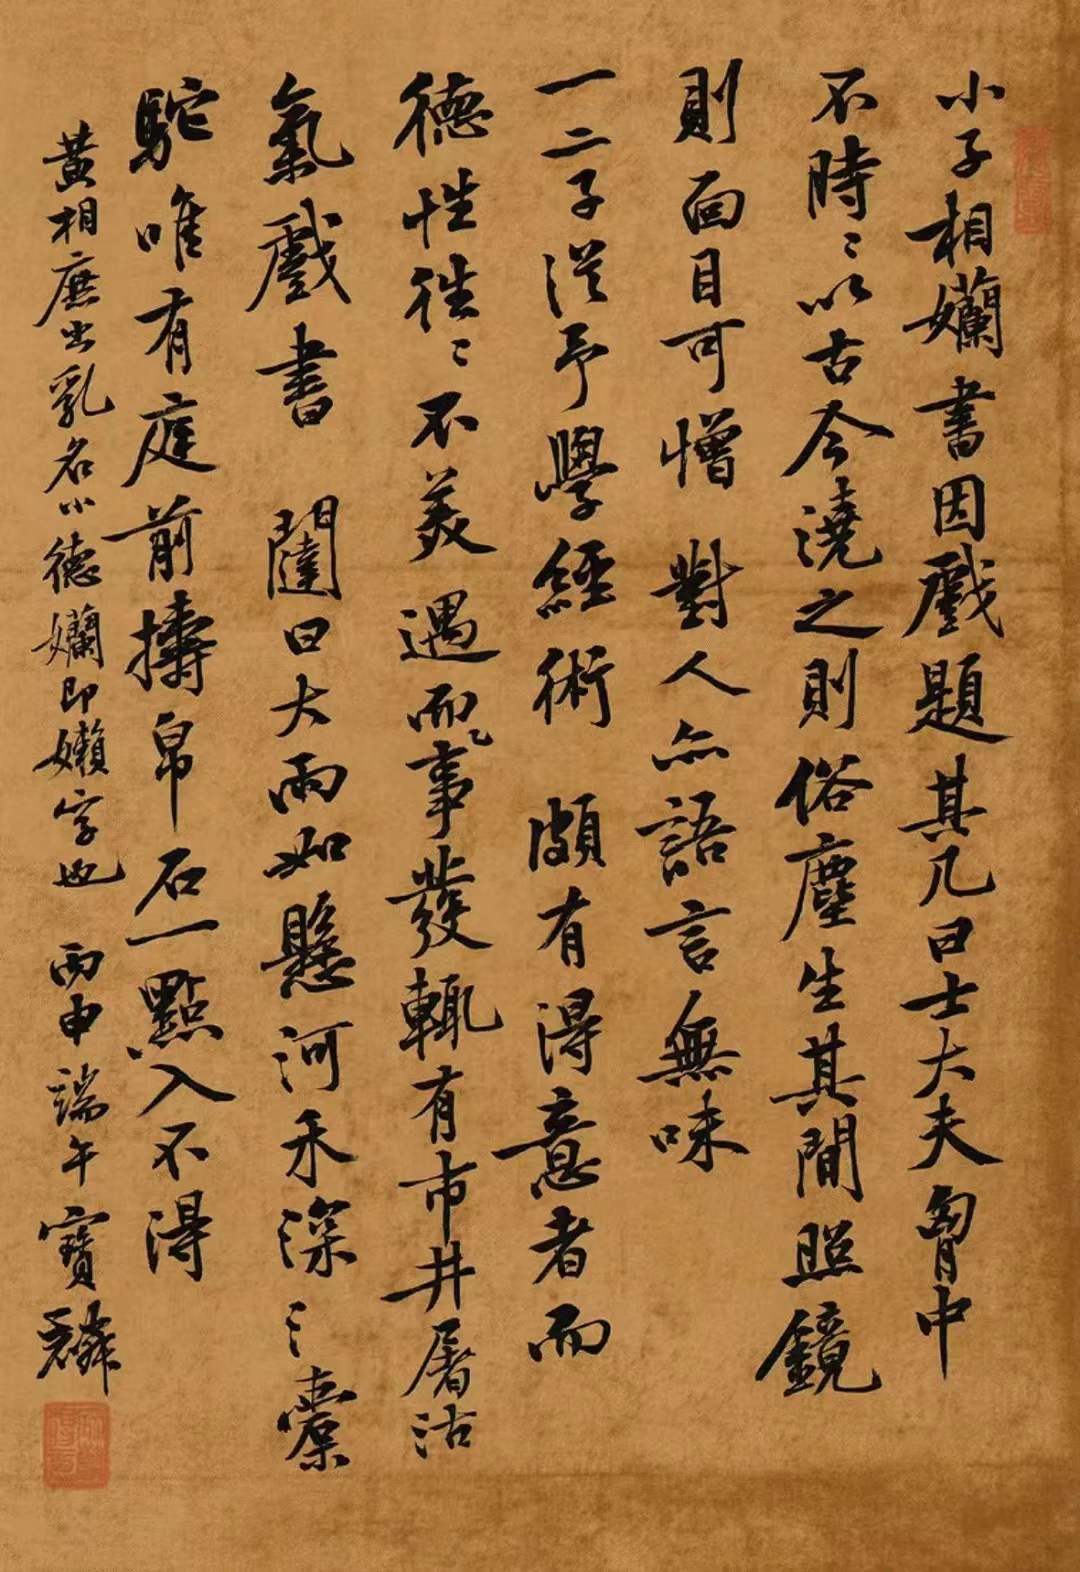 小子相孏書因戲題其几曰士大夫胷中
不時〻以古今澆之則俗塵生其間照鏡
則面目可憎對人亦語言無味
一二子從予學經術頗有得意者而
德性往〻不美遇而事發輒有市井屠沽
氣戲書 闥曰大雨如懸河禾深〻橐
駝唯有庭前擣帛石一點入不得
黃相庶出乳名小德孏即嬾字也 丙申端午寶麟